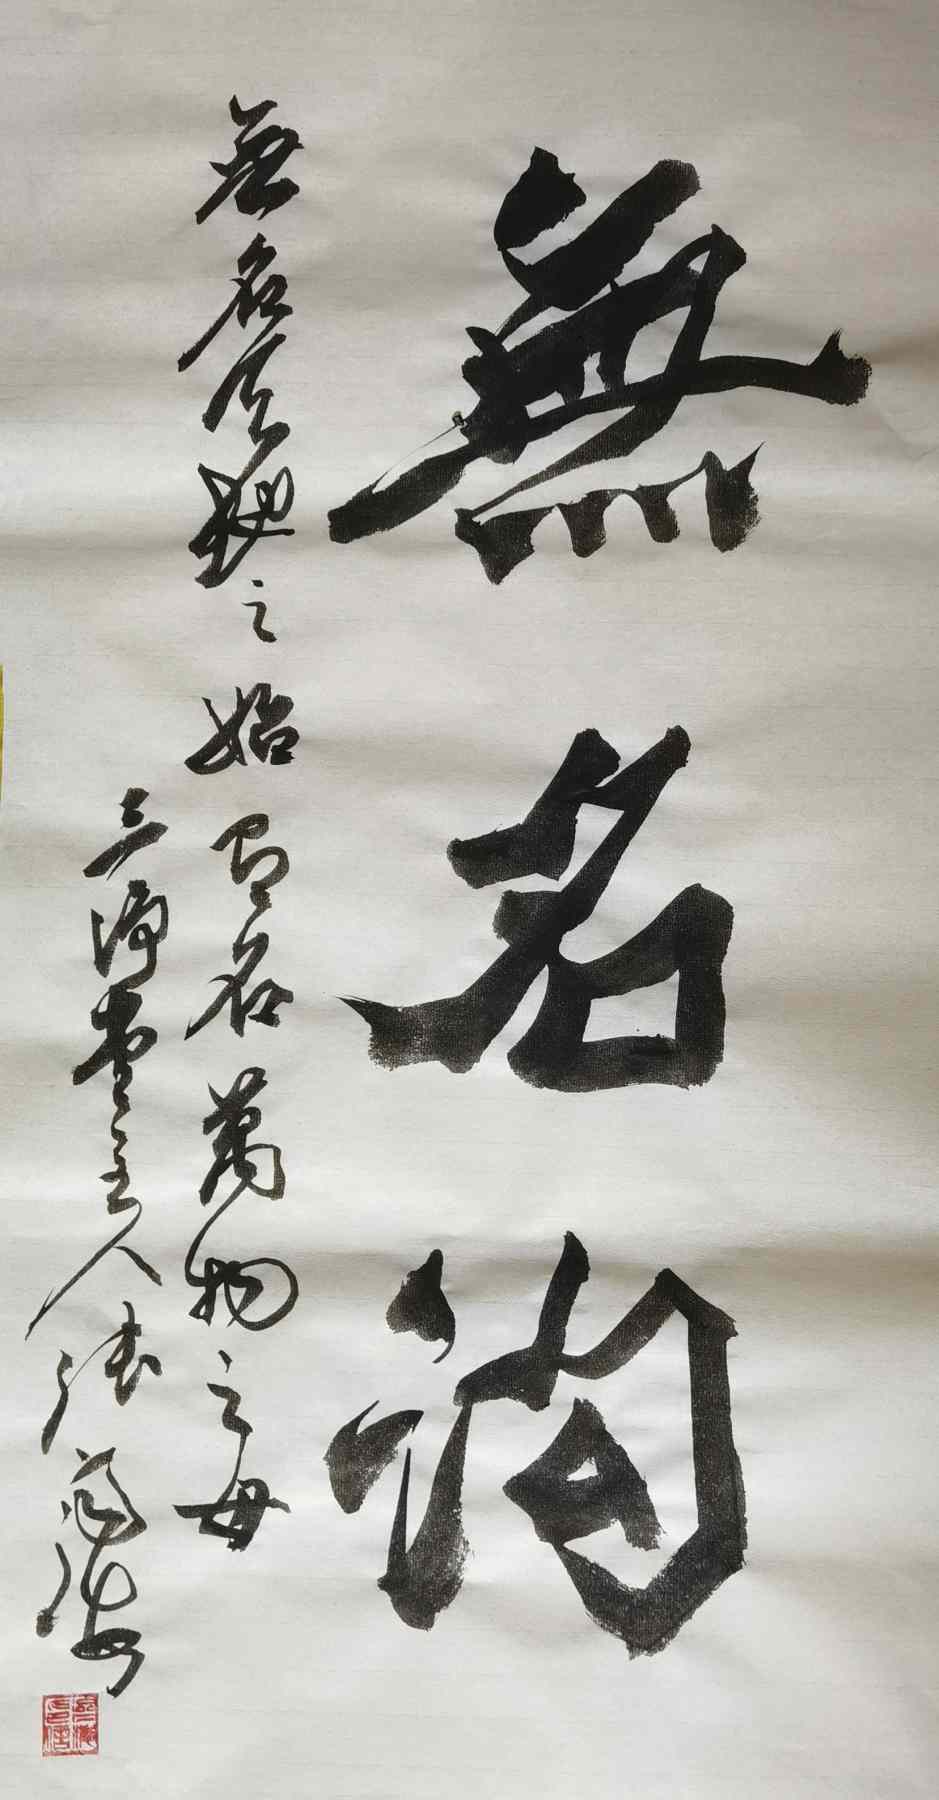 無名
無名天地之始有名萬物之母
三淨堂主人